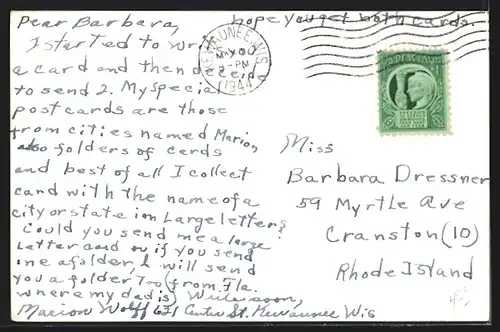 Dear Barbara, hope you get both cards
I started to wr
a card and then decided
to send 2. My special
postcards are those
from cities named Marion,
also folders of cards
and best of all I collect
card with the name of a
city or state in Large letters
Could you send me a large
Letter card or if you send
me a folder, I will send
you a folder too (from Fla.
where my dad is) Write soon,
Marion Wolff 621 Center St. Kewaunee Wis
KEWAUNEE, WIS.
MAY
PM
1944
Miss
Barbara Dressner
59 Myrtle Ave
Cranston (10)
Rhode Island